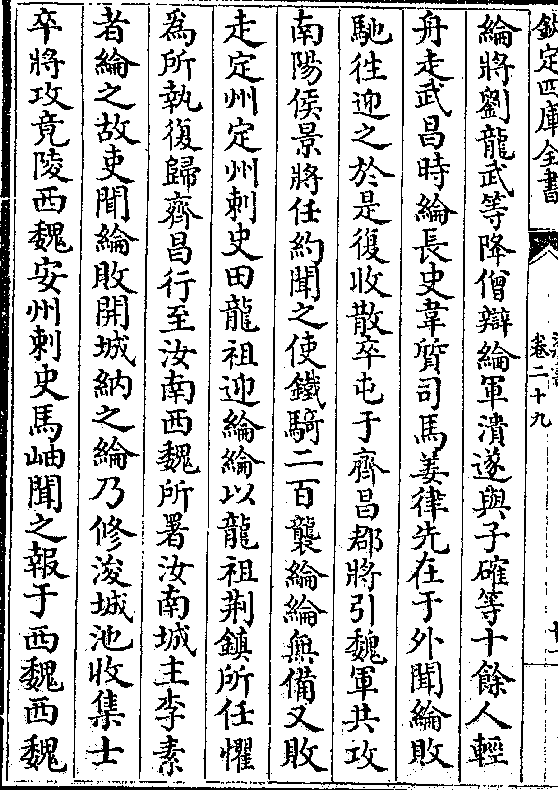 欽定四庫全書
卷二十九
綸將劉龍武等降僧辯綸軍潰遂與子確等十餘人輕
舟走武昌時綸長史韋質司馬姜律先在于外聞綸敗
馳往迎之於是復收散卒屯于齊昌郡將引魏軍共攻
南陽侯景將任約聞之使鐵騎二百襲綸綸無備又敗
走定州定州刺史田龍祖迎綸綸以龍祖荆鎮所任懼
為所執復歸齊昌行至汝南西魏所署汝南城主李素
者綸之故吏聞綸敗開城納之綸乃修浚城池收集士
卒將攻竟陵西魏安州刺史馬岫聞之報于西魏西魏